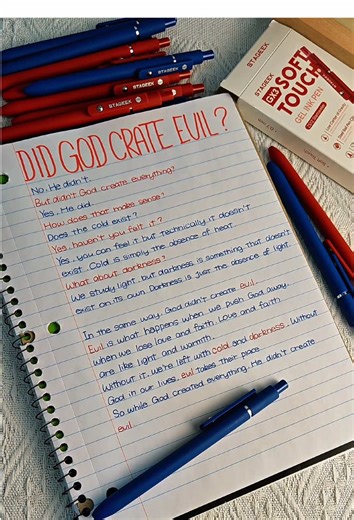 STAGEEK
STAGEEK
STAGEEK
STAGEEK
STAGEEK
GX3
SOFT
TOUCH
GEL INK PEN
DID GOD CRATE EVIL?
No, He didn't.
But didn't God create everything?
Yes, He did.
How does that make sense?
Does the cold exist?
Yes, haven't you felt it?
Yes, you can feel it but technically it doesn't
exist. Cold is simply the absence of heat.
What about darkness?
We study light, but darkness is something that doesn't
exist on its own. Darkness is just the absence of light.
In the same way, God didn't create evil.
Evil is what happens when we push God away,
when we lose love and faith. Love and faith
are like light and warmth.
Without it, we're left with cold and darkness. Without
God in our lives, evil takes their place.
So while God created everything, He didn't create
evil.